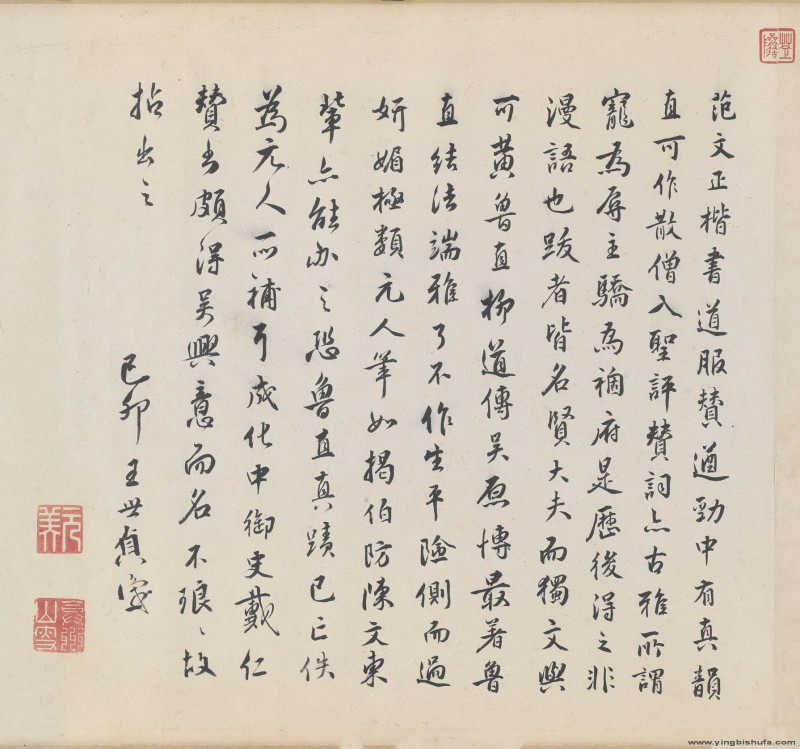 范文正楷書道服贊遒勁中有真韻
直可作散僧入聖評贊詞亦古雅所謂
寵為辱主驕為禍府是歷後得之非
漫語也跋者皆名賢大夫而獨文與
可黃魯直柳道傳吳原博最著魯
直結法端雅了不作生平險側而過
妍媚極類元人筆如揭伯防陳文東
輩亦能办之恐魯直真蹟已亡佚
為元人所補耳成化中御史戴仁
贊書頗得吳興意而名不琅々故
拈出之
己卯王世貞識
元美
www.yingbishufa.com